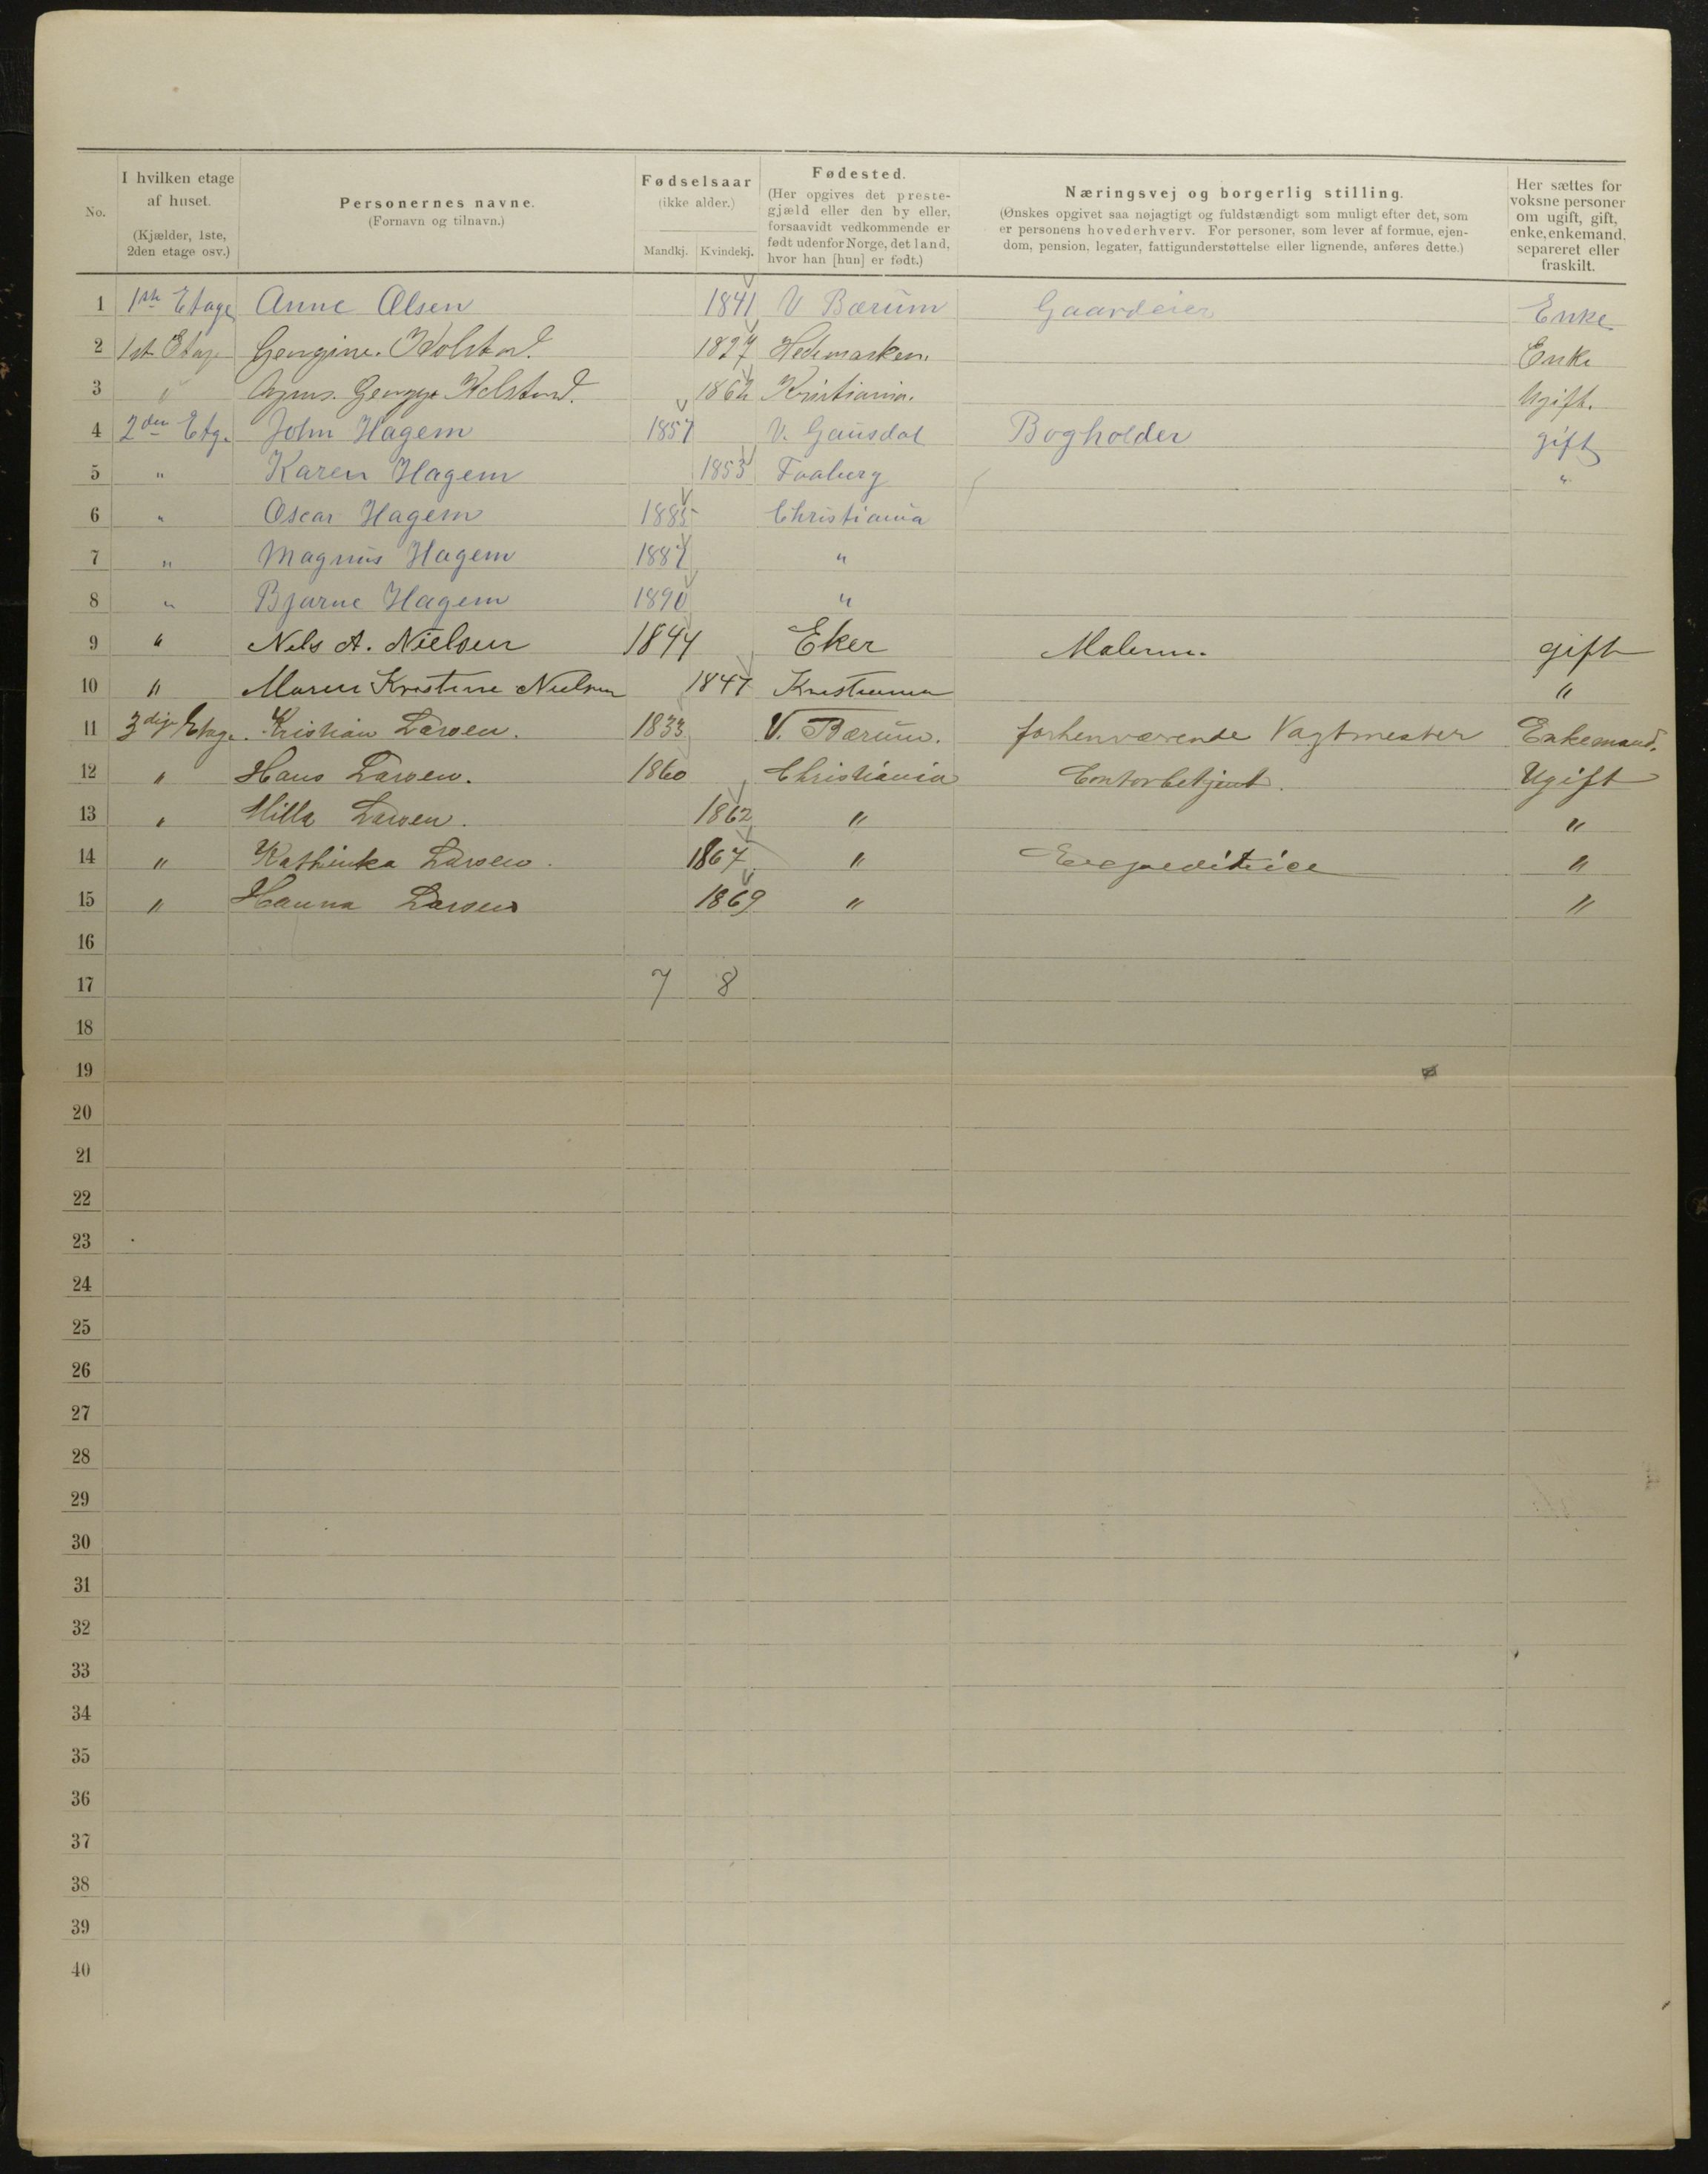 No. | I hvilken etage af huset. (Kjælder, 1ste, 2den etage osv.) | Personernes navne. (Fornavn og tilnavn.) | Fødselsaar (ikke alder.) Mandkj. Kvindekj. | Fødested. (Her opgives det prestegjæld eller den by eller, forsaavidt vedkommende er født udenfor Norge, det land, hvor han [hun] er født.) | Næringsvej og borgerlig stilling. (Ønskes opgivet saa nøjagtigt og fuldstændigt som muligt efter det, som er personens hovederhverv. For personer, som lever af formue, ejendom, pension, legater, fattigunderstøttelse eller lignende, anføres dette.) | Her sættes for voksne personer om ugift, gift, enke, enkemand, separeret eller fraskilt.
1 1ste Etage Anne Olsen 1841 V Bærum Gaardeier Enke
2 1ste Etage Georgine Holstad. 1827 Hedemarken. Enke
3 " Holstad. 1862 Kristiania. Ugift.
4 2den Etg. John Hagem 1857 V. Gausdal Bogholder gift
5 " Karen Hagem 1853 Faaberg "
6 " Oscar Hagem 1885 Christiania
7 " Magnus Hagem 1887 "
8 " Bjarne Hagem 1890 "
9 " Nels A. Nielsen 1844 Eker Malerm. gift
10 " Maren Kristine Nielsen 1847 Kristiania "
11 3die Etage. Kristian Larsen. 1833 V. Bærum. forhenværende Vagtmester Enkemand.
12 " Hans Larsen. 1860 Christiania Contorbetjent. Ugift
13 " Milla Larsen. 1862 " "
14 " Kathinka Larsen. 1867 " Expeditrice "
15 " Hanna Larsen 1869 " "
16
17 7 8
18
19
20
21
22
23
24
25
26
27
28
29
30
31
32
33
34
35
36
37
38
39
40